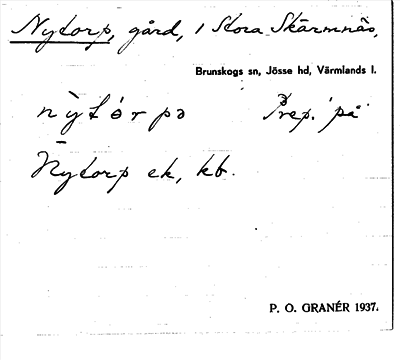 Nytorp, gård, i Stora Skärmnäs,
Brunskogs sn, Jösse hd, Värmlands l.
nỳtórpə Prep. 'på'
Nytorp ek, kb.
P. O. GRANÉR 1937.